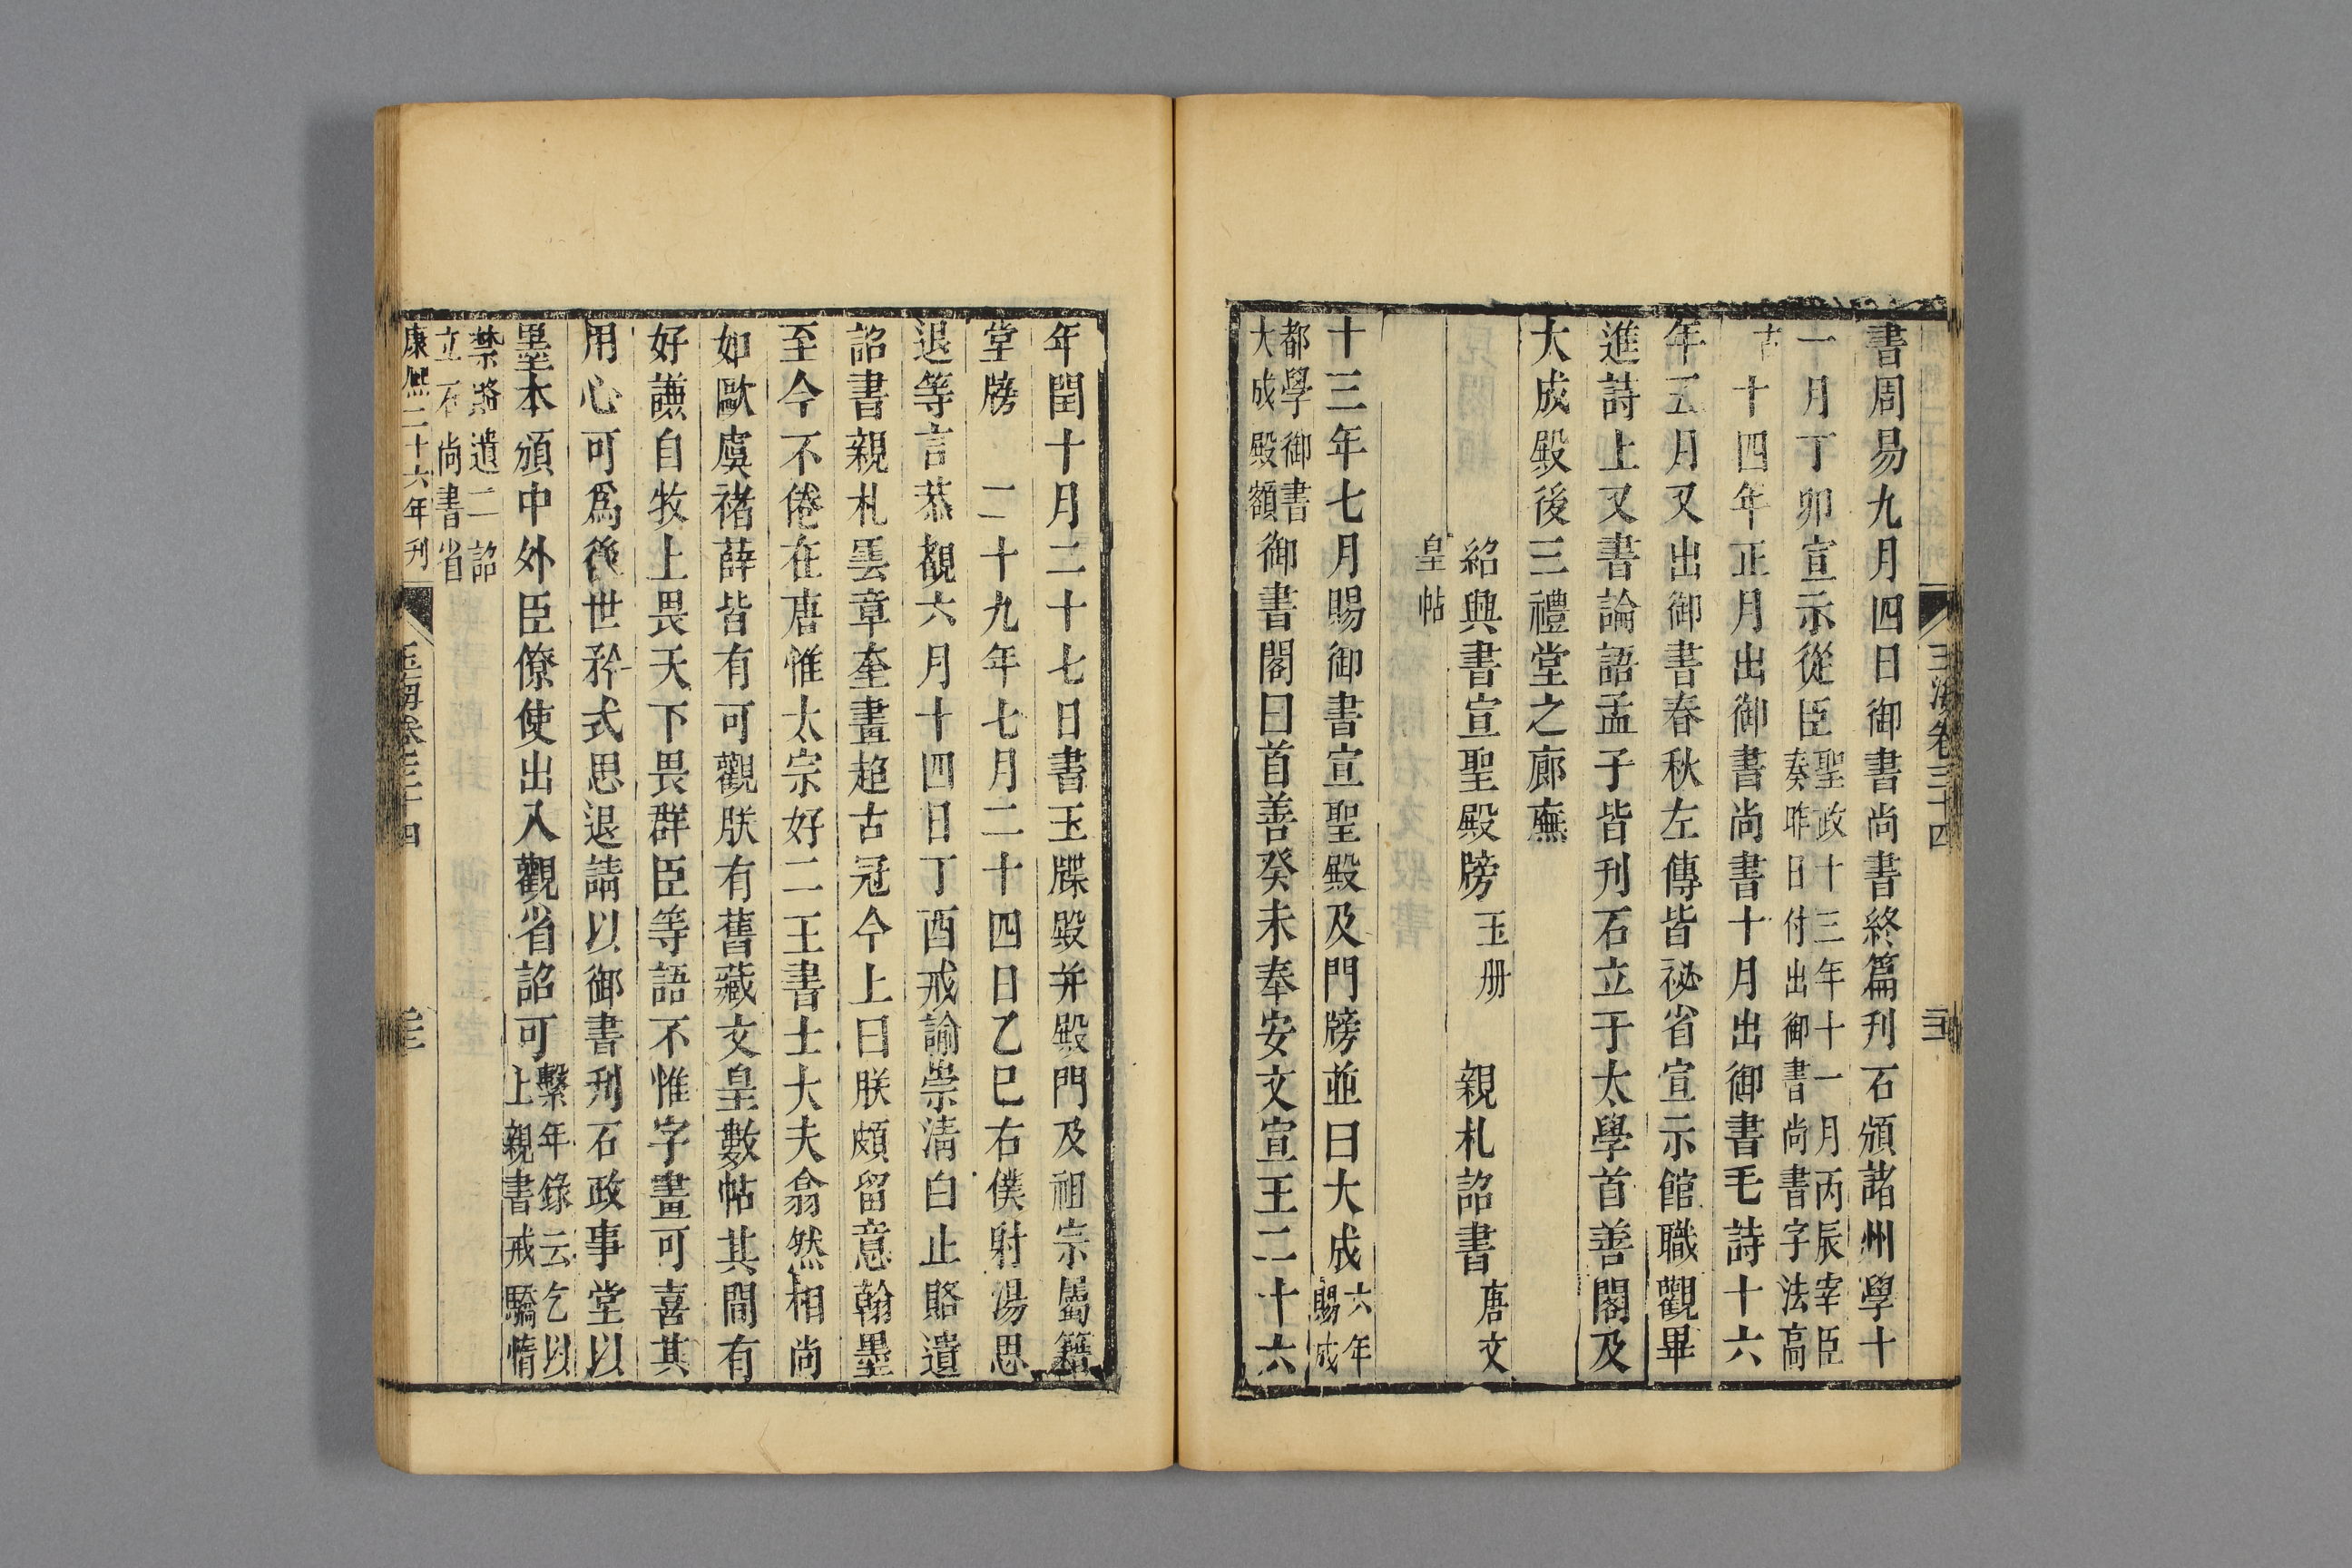 玉海卷三十四
書周易九月四日御書尚書終篇刊石頒諸州學十
一月丁卯宣示從臣聖政十三年十一月丙辰宰臣
奏昨日付出御書尚書字法高
古
十四年正月出御書尚書十月出御書毛詩十六
年五月又出御書春秋左傳皆祕省宣示館職觀畢
進詩上又書論語孟子皆刊石立于太學首善閣及
大成殿後三禮堂之廊廡
紹興書宣聖殿牓 玉册 親札詔書 唐文
皇帖
十三年七月賜御書宣聖殿及門牓並曰大成六年
賜成
都學御書
大成殿額御書閣曰首善癸未奉安文宣王二十六
年閏十月二十七日書玉牒殿并殿門及祖宗屬籍
堂牓 二十九年七月二十四日乙巳右僕射湯思
退等言恭覩六月十四日丁酉戒諭崇清白止賂遺
詔書親札雲章奎畫超古冠今上曰朕頗留意翰墨
至今不倦在唐惟太宗好二王書士大夫翕然相尚
如歐虞褚薛皆有可觀朕有舊藏文皇數帖其間有
好謙自牧上畏天下畏群臣等語不惟字畫可喜其
用心可爲後世矜式思退請以御書刋石政事堂以
墨本頒中外臣僚使出入觀省詔可繫年錄云乞以
上親書戒驕惰
禁賂遺二詔
立石尚書省
康熙二十六年刊
玉海卷三十四